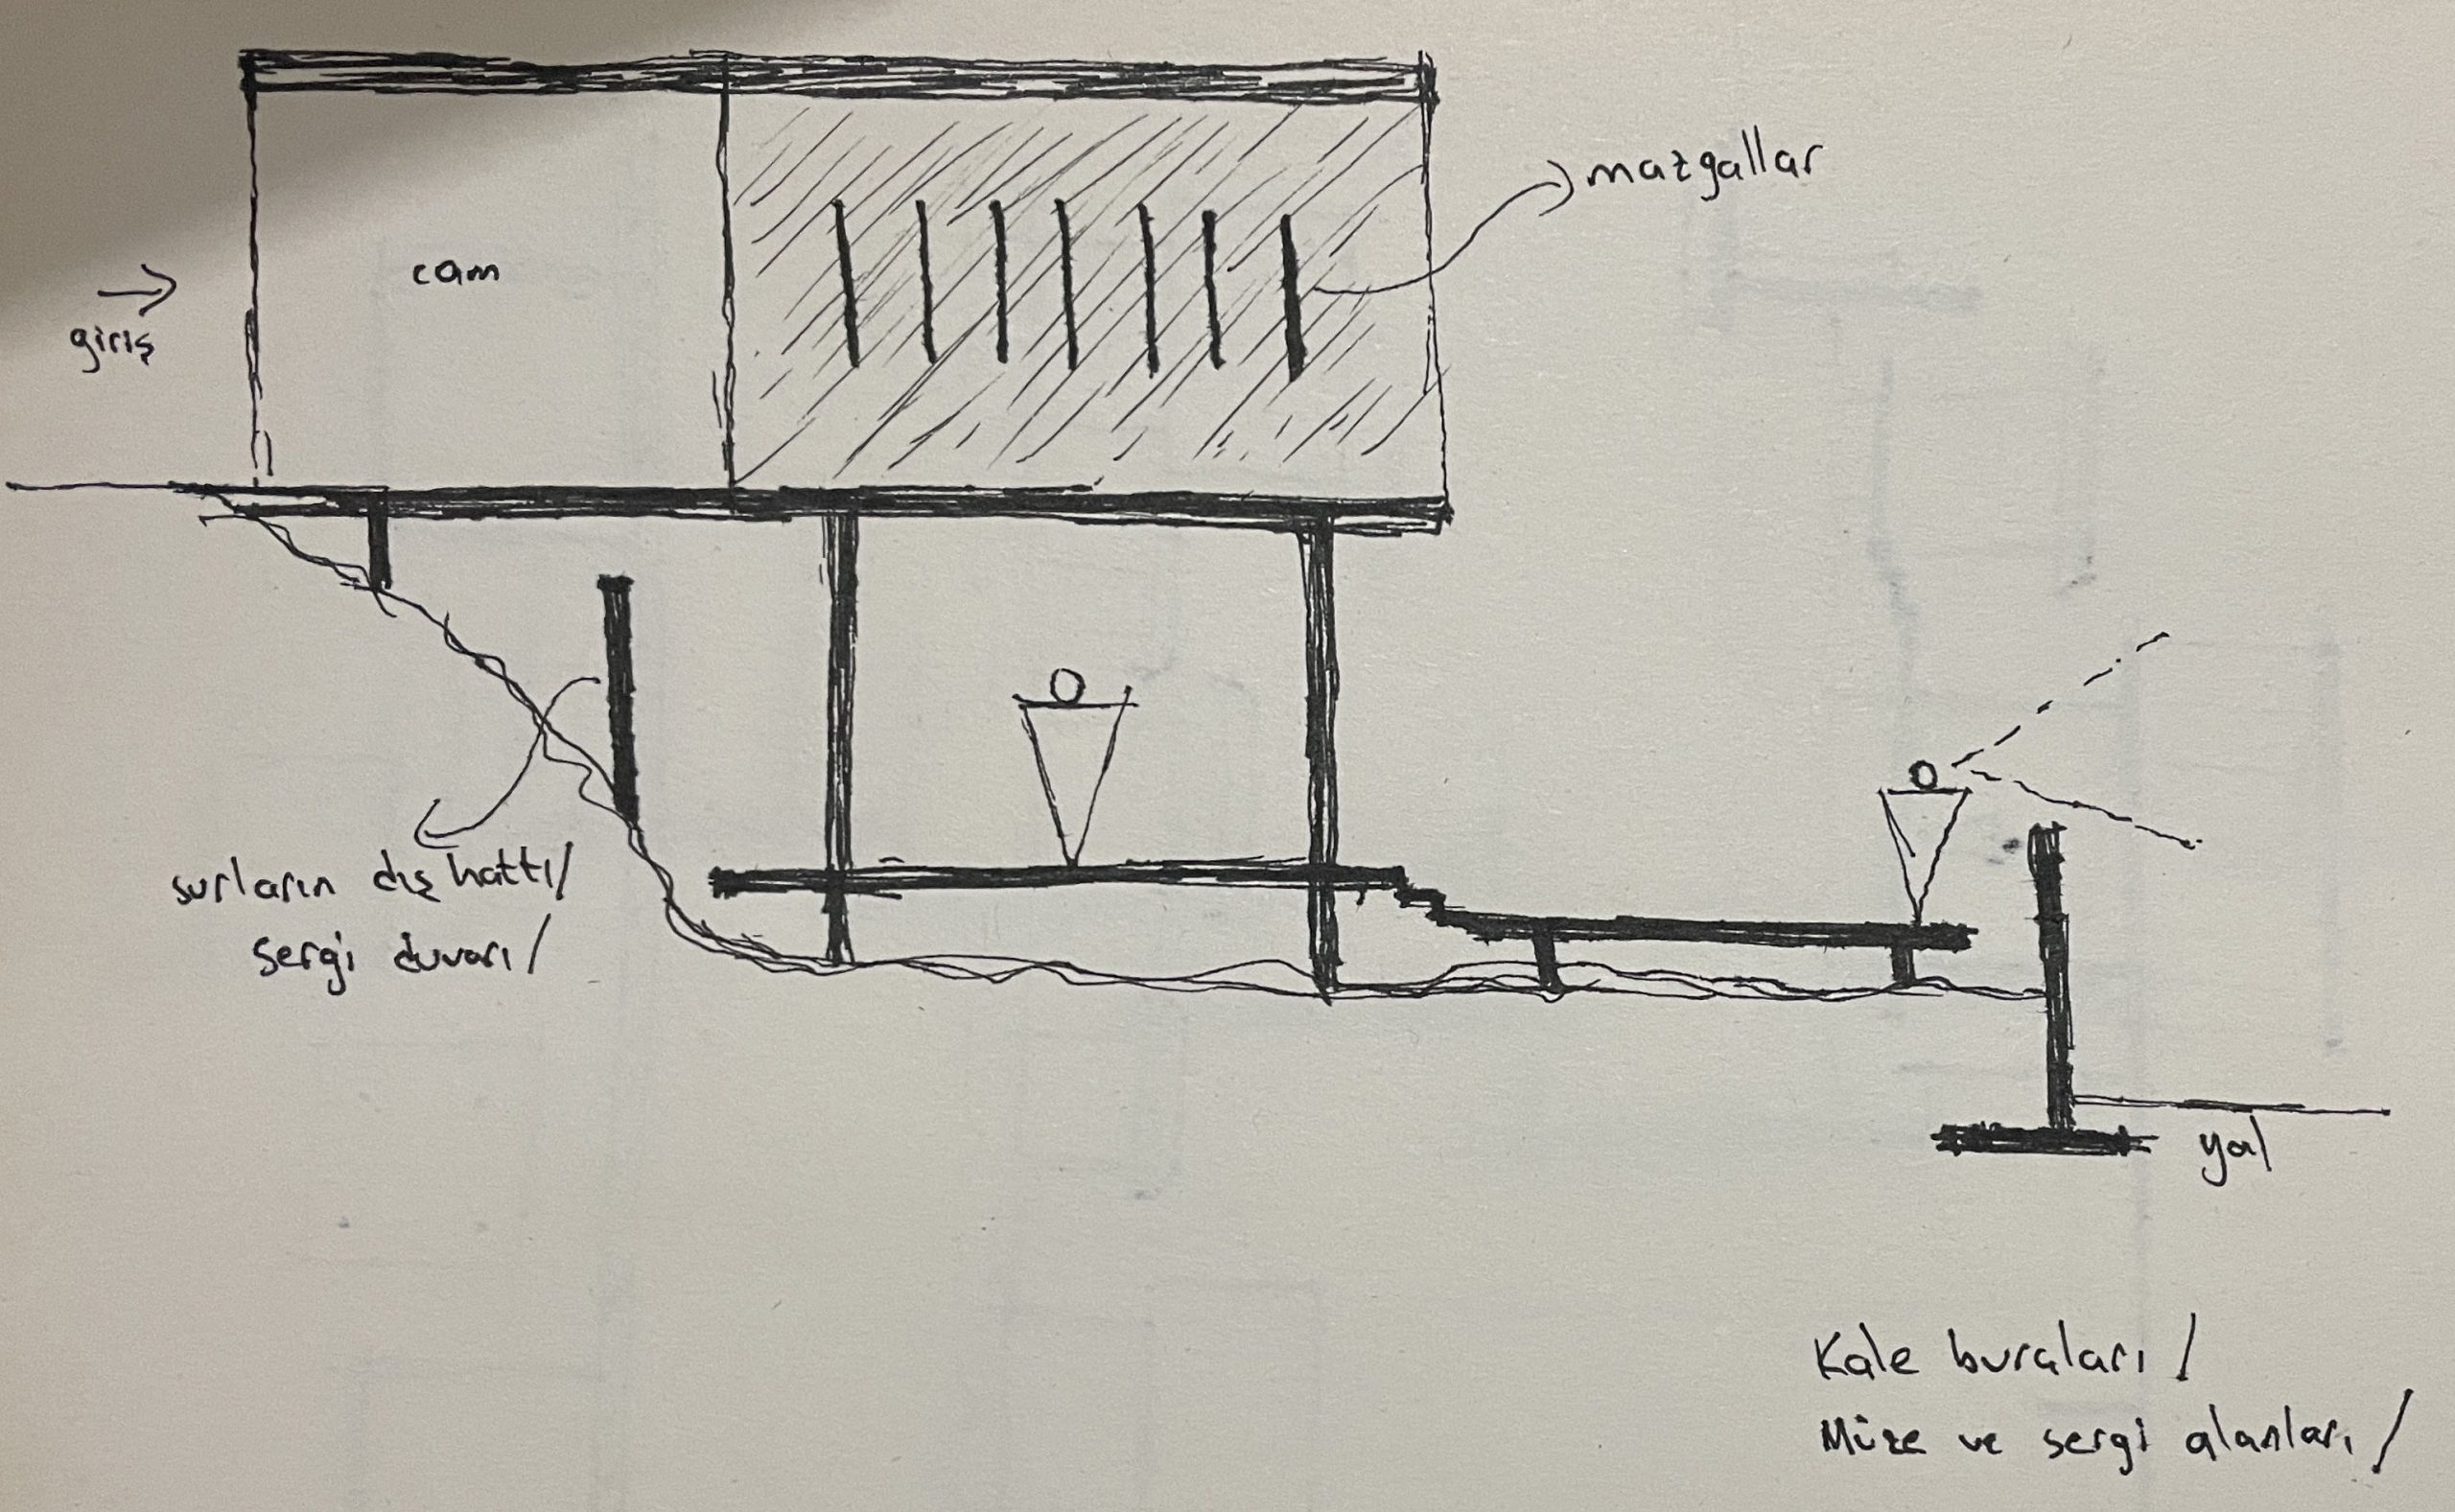 mazgallar
cam
giriş
surların dış hattı/
sergi duvarı/
yol
Kale buraları/
Müze ve sergi alanları/